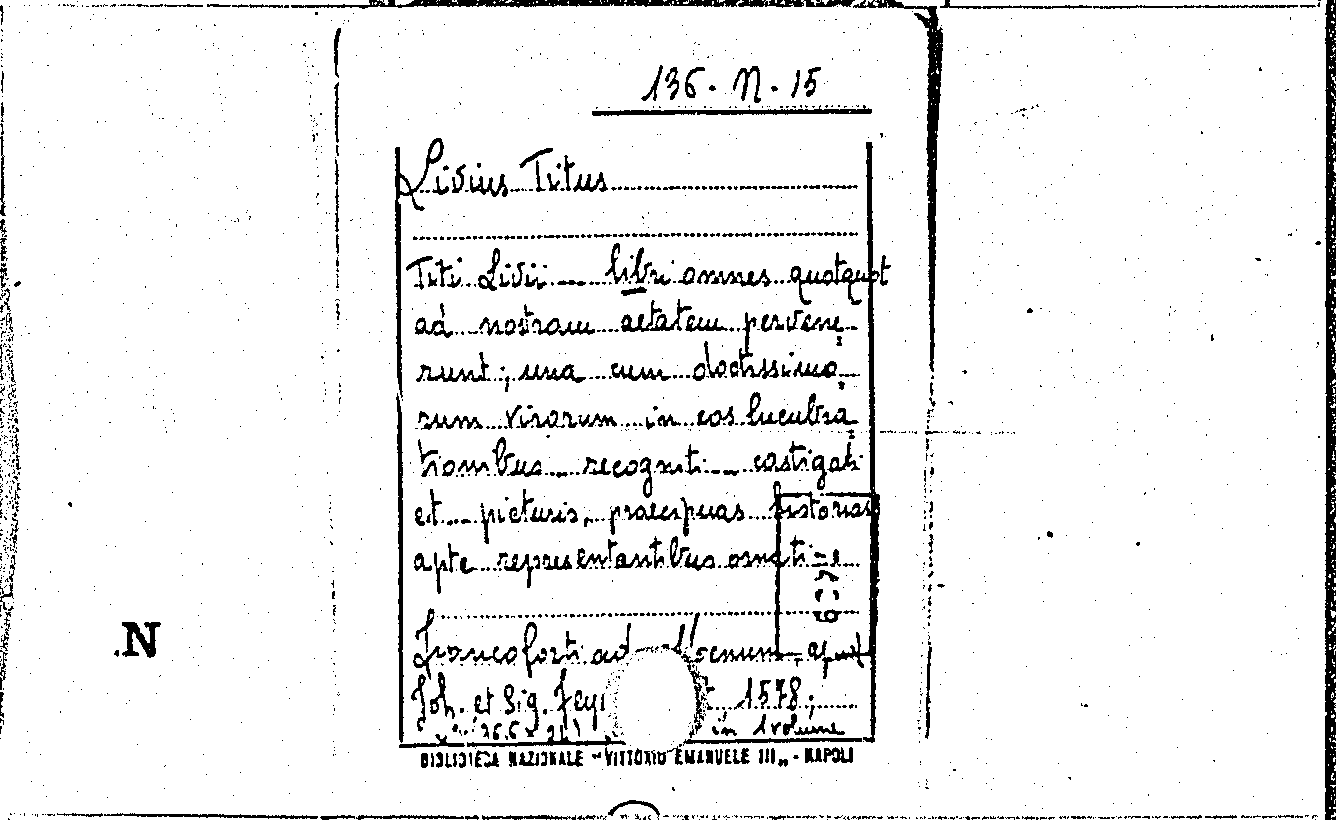 136. N. 15
Livius Titus
Titi Livii ... libri omnes quotquot
ad nostram aetatem pervene=
runt; una cum doctissimo=
rum virorum in eos lucubra=
tionibus recogniti castigati
et picturis, praecipuas historias
apte representantibus ornati
Francoforti ad apud
Joh. et Sig. 1578;
in 1 volume
N
BIBLIOTECA NAZIONALE "VITTORIO EMANUELE III„ - NAPOLI